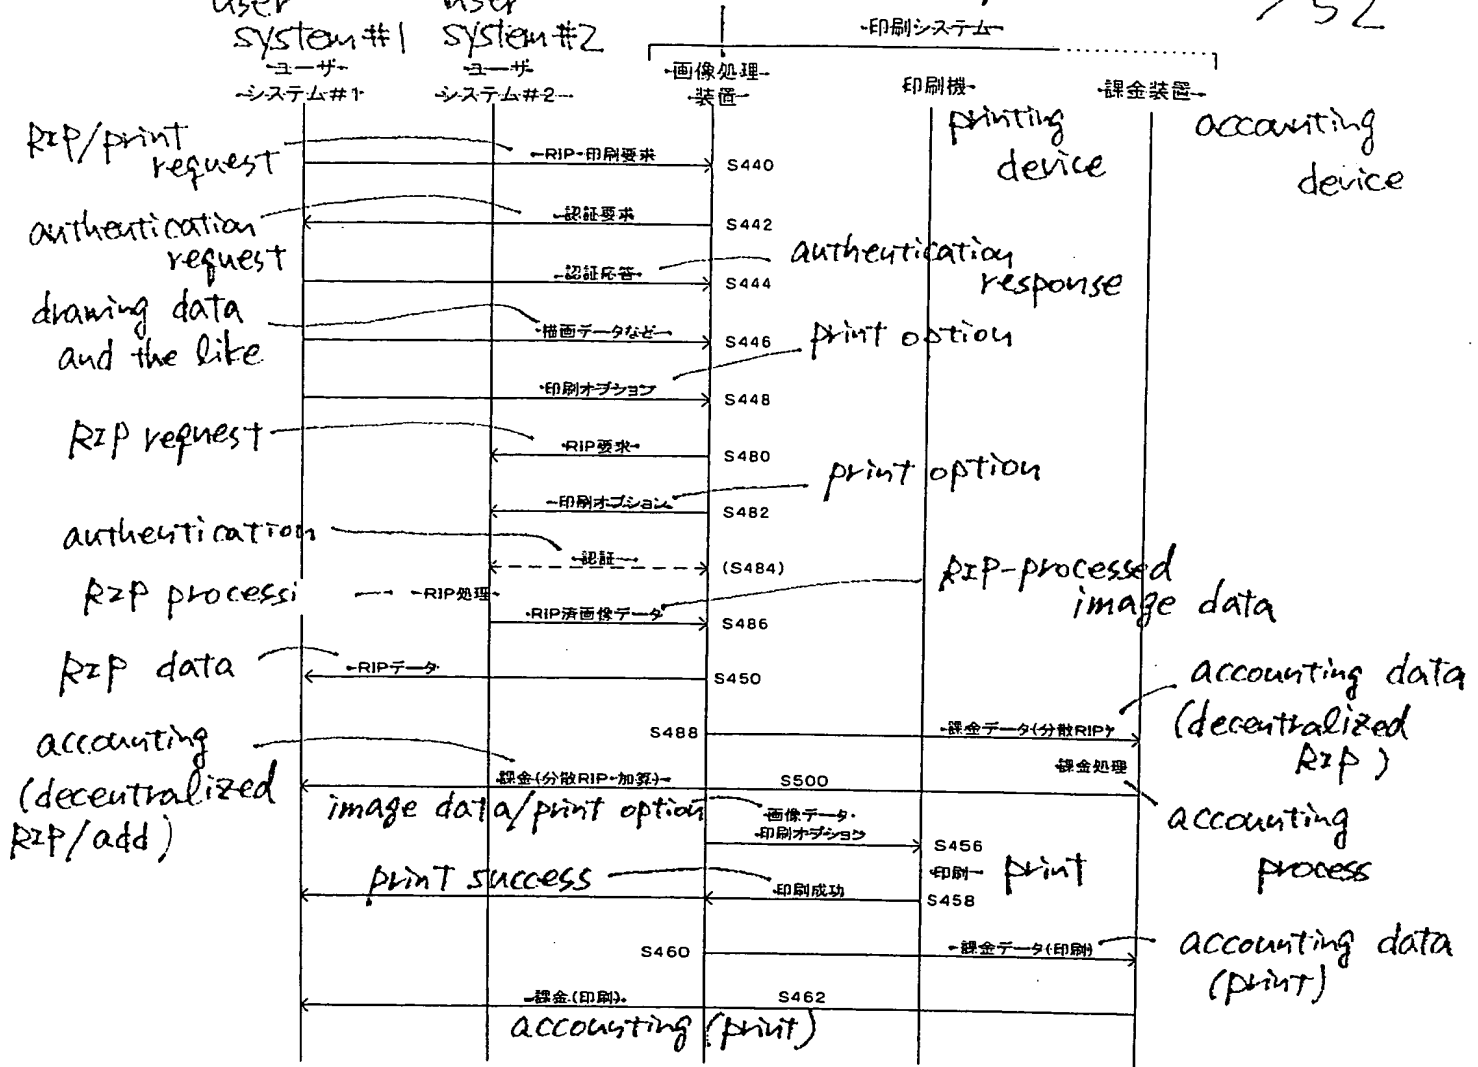 user user
system#1 system#2
印刷システム
152
ユーザ
システム#1
ユーザ
システム#2
画像処理
装置
印刷機
課金装置
printing
device
accounting
device
RIP/print
request
RIP・印刷要求
S440
authentication
request
認証要求
S442
認証応答
S444
authentication
response
drawing data
and the like
描画データなど
S446
print option
印刷オプション
S448
RIP request
RIP要求
S480
印刷オプション
S482
print option
authentication
認証
(S484)
RIP processi
RIP処理
RIP済画像データ
S486
RIP-processed
image data
RIP data
RIPデータ
S450
S488
課金データ(分散RIP)
accounting data
(decentralized
RIP)
accounting
(decentralized
RIP/add)
課金(分散RIP・加算)
S500
課金処理
accounting
process
image data/print option
画像データ・
印刷オプション
S456
印刷
print
print success
印刷成功
S458
S460
課金データ(印刷)
accounting data
(print)
課金(印刷)
S462
accounting (print)